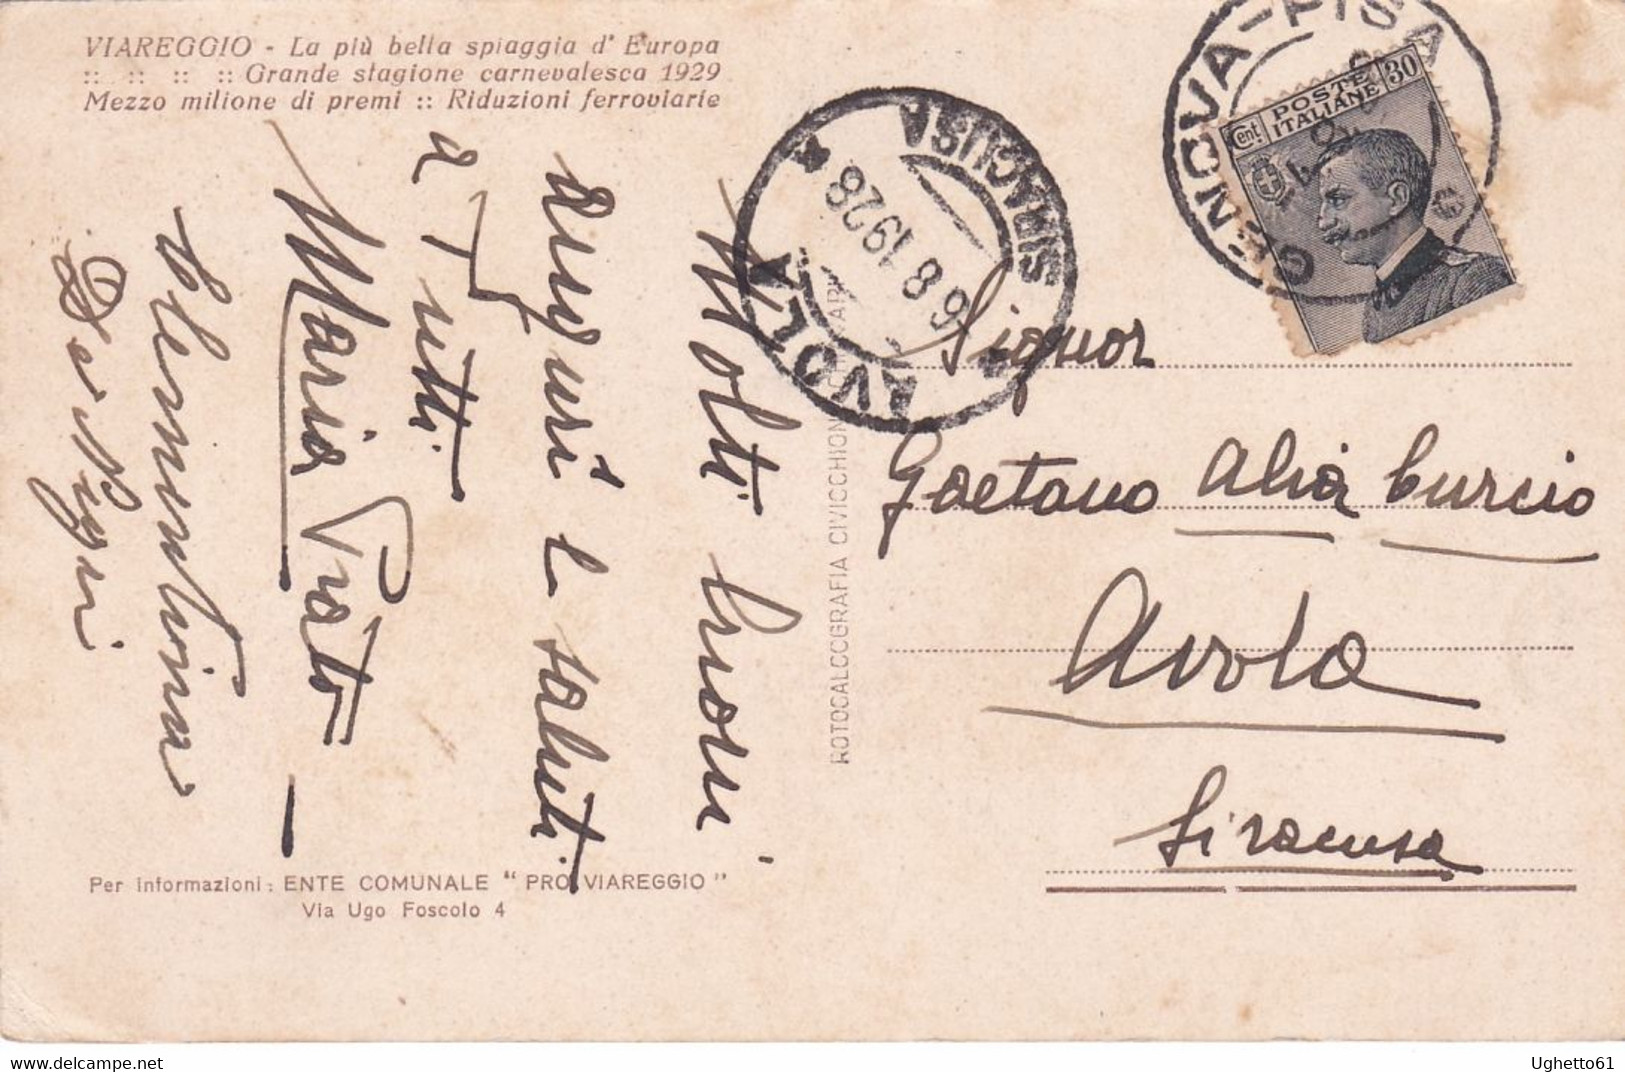 VIAREGGIO - La più bella spiaggia d' Europa
:: :: :: :: Grande stagione carnevalesca 1929
Mezzo milione di premi :: Riduzioni ferroviarie
Molti buoni
auguri e saluti
a Tutti
Maria Prato
Clementina
De Nigri
Per informazioni: ENTE COMUNALE " PRO VIAREGGIO "
Via Ugo Foscolo 4
ROTOCALCOGRAFIA CIVICCHIONI
AVOLA
SIRACUSA
6 8 1928
GENOVA-PISA
Cent 30
POSTE
ITALIANE
Signor
Gaetano Alia Curcio
Avola
Siracusa
Ughetto61
delcampe.net